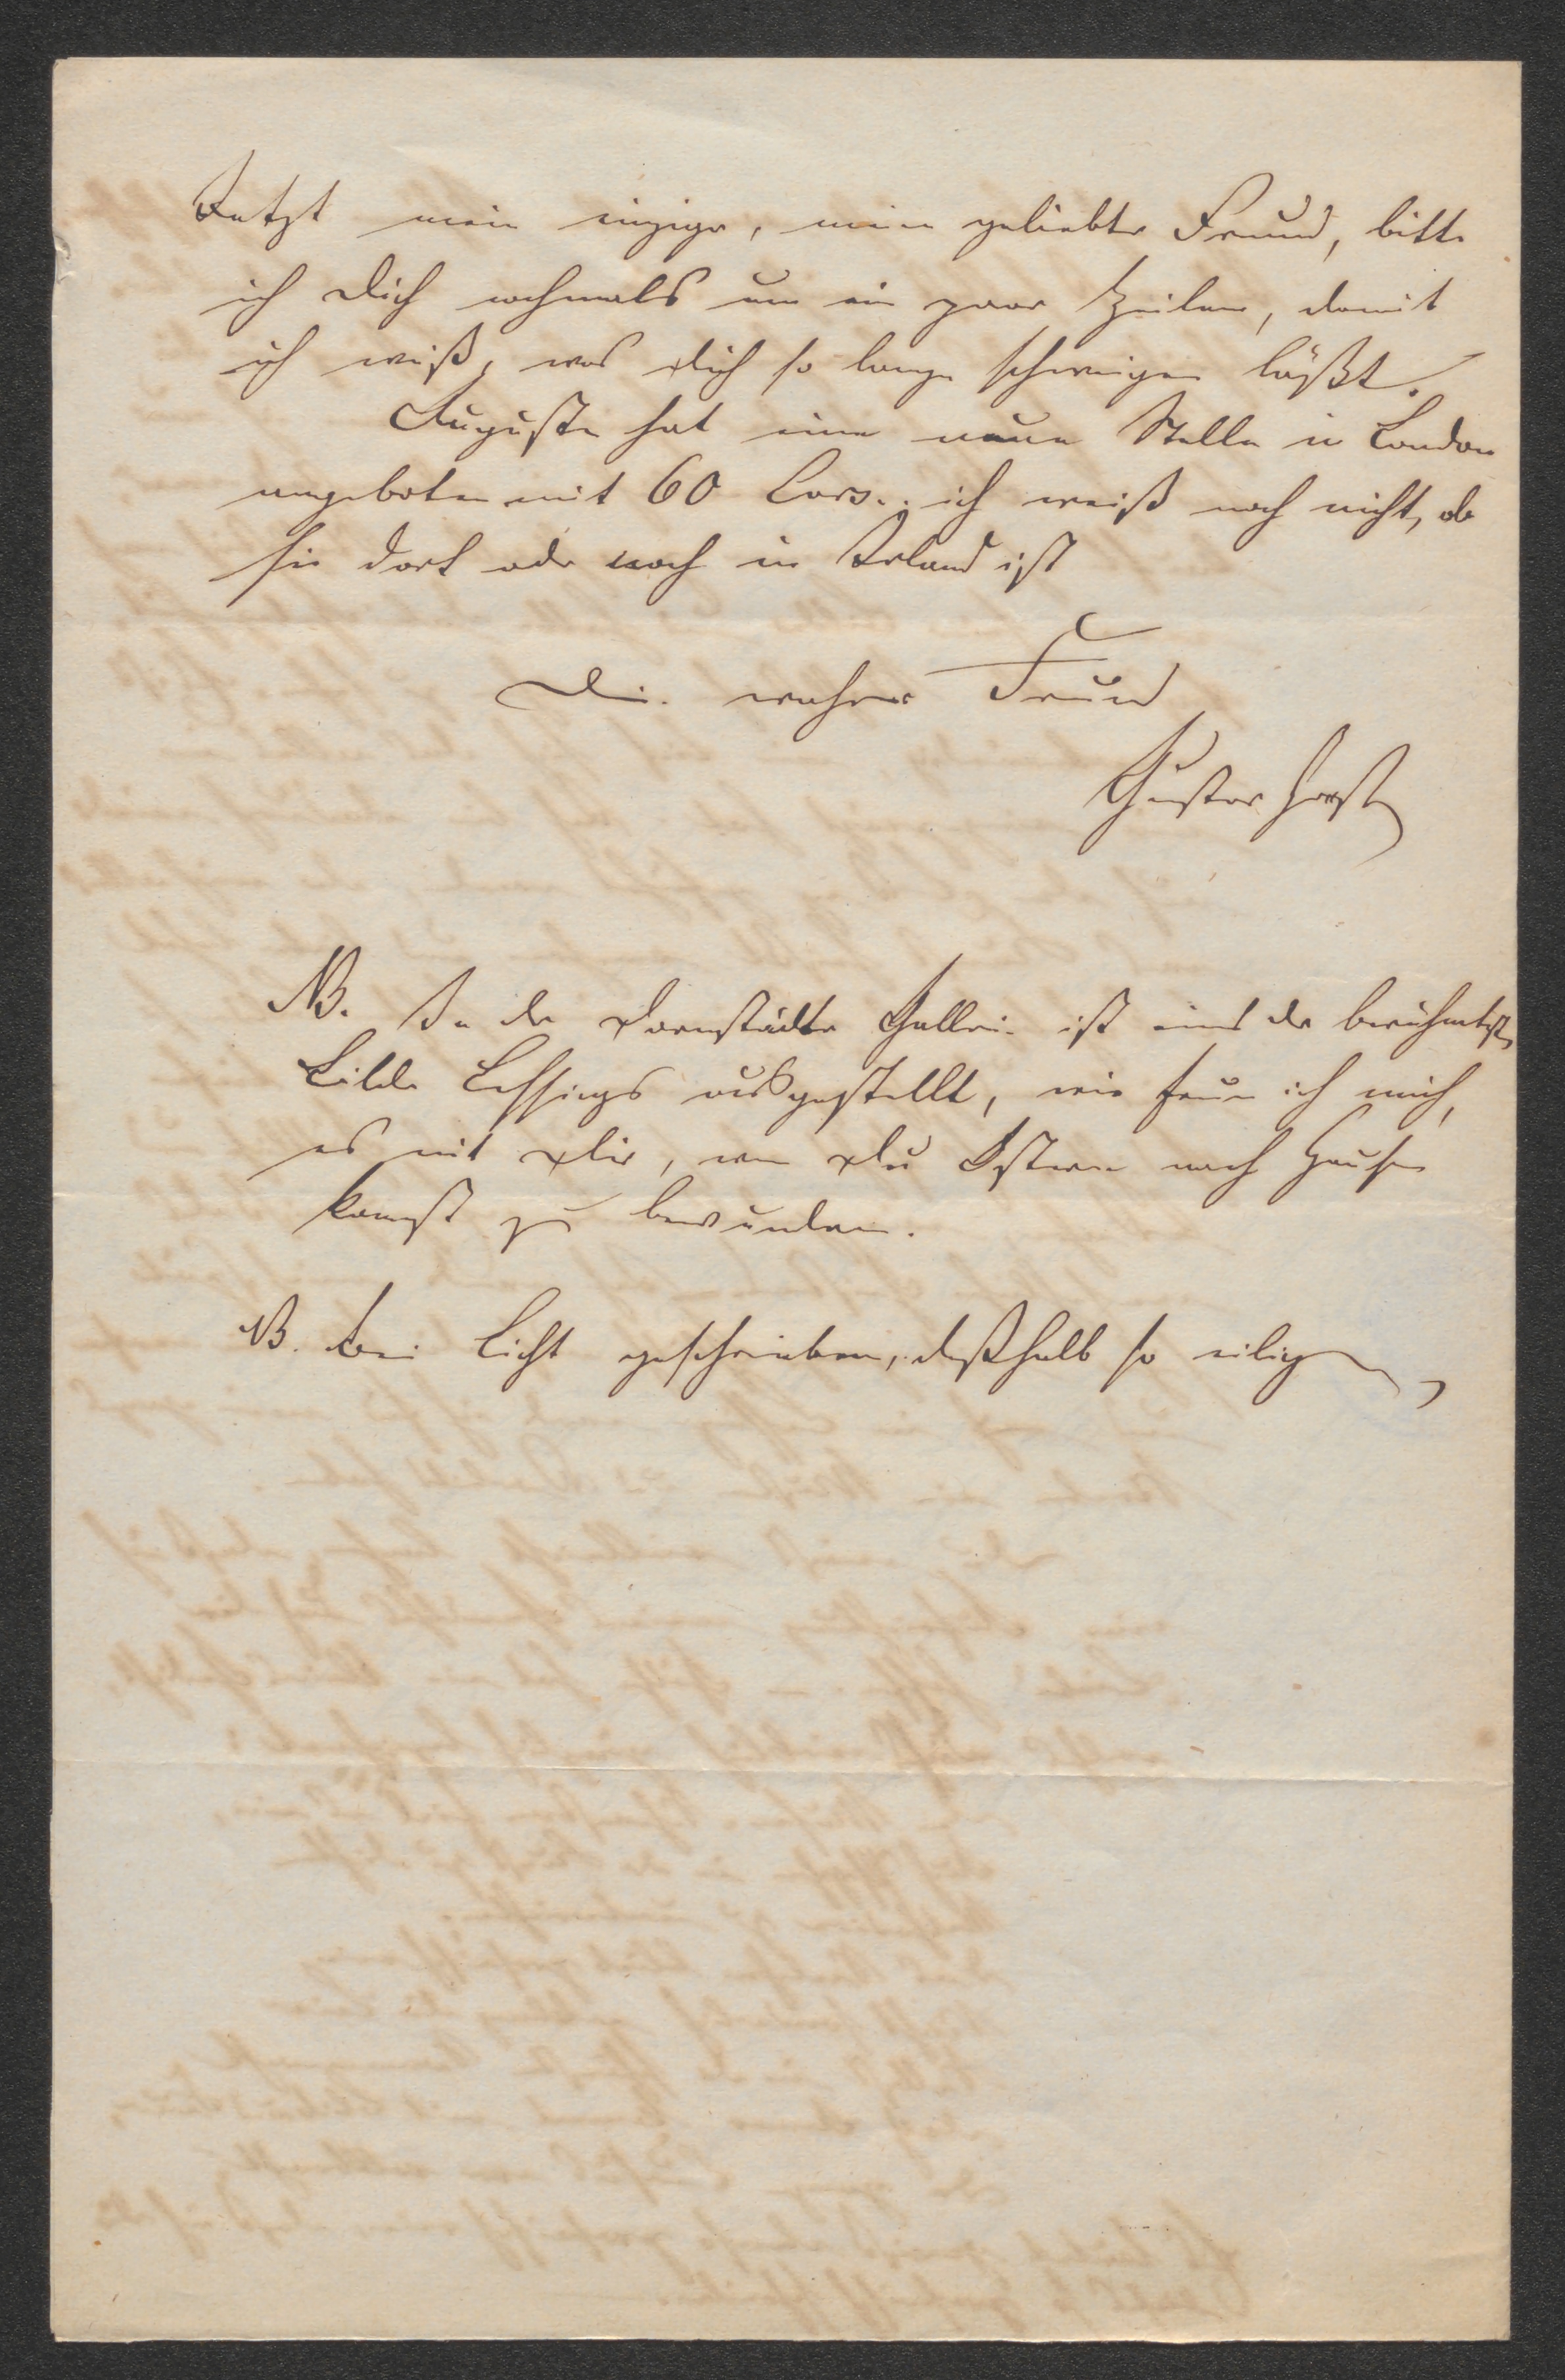 Jetzt mein einziger, mein geliebter Freund, bitte
ich Dich nochmals um ein paar Zeilen, damit
ich weiß, was Dich so lange schweigen läßt.
Auguste hat eine neue Stelle in London
angeboten mit 60 ich weiß noch nicht, ob
sie dort oder noch in Irland ist
Dein wahrer Freund
Gustav Horst
NB. In der Darmstädter Gallerie ist eins der berühmtesten
Bilder Lessings ausgestellt, wie freue ich mich,
es mit Dir, wenn Du Ostern nach Hause
kommst zu bewundern.
NB. Bei Licht geschrieben, deßhalb so eilig